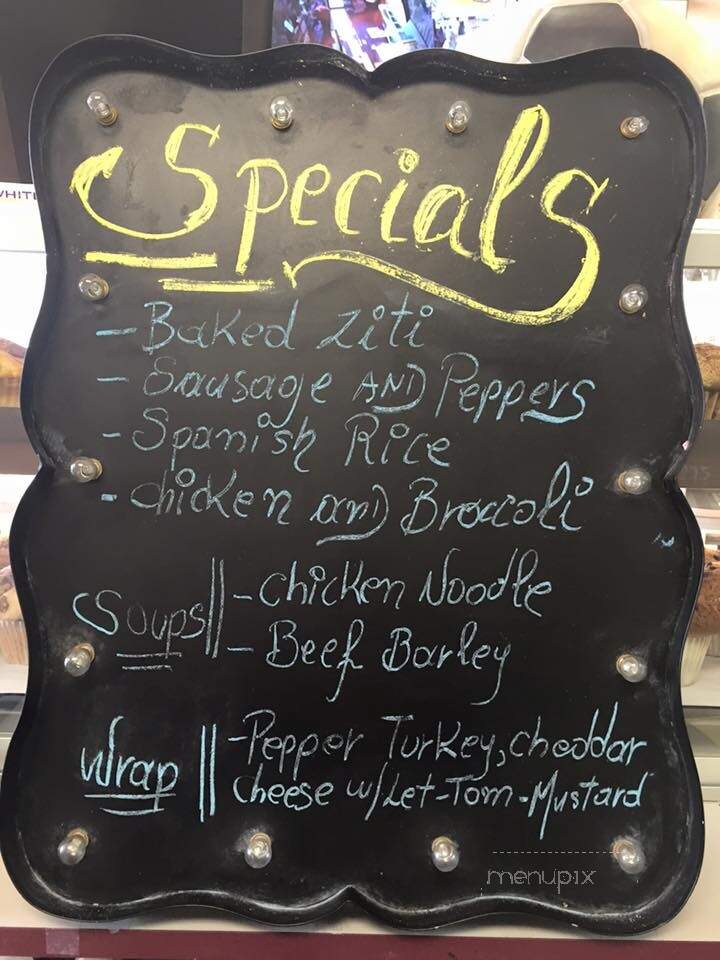 WHIT
Specials
- Baked Ziti
- Sausage AND Peppers
- Spanish Rice
- Chicken and Broccoli
Soups || - Chicken Noodle
- Beef Barley
Wrap || - Pepper Turkey, cheddar
cheese w/Let-Tom-Mustard
menupix